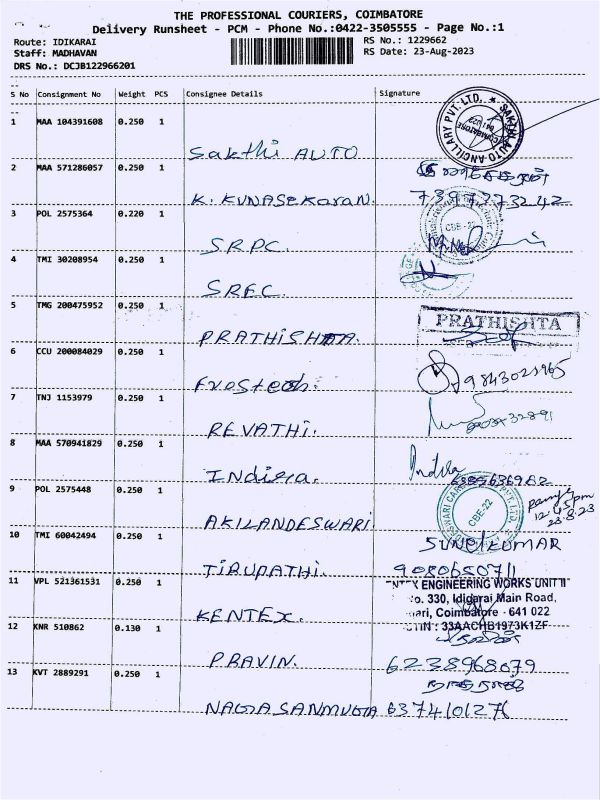 THE PROFESSIONAL COURIERS, COIMBATORE
Delivery Runsheet - PCM - Phone No.:0422-3505555 - Page No.:1
Route: IDIKARAI
RS No.: 1229662
Staff: MADHAVAN
RS Date: 23-Aug-2023
DRS No.: DCJB122966201
S No Consignment No Weight PCS Consignee Details Signature
1 MAA 104391608 0.250 1
SAKTHI AUTO ANCILLARY PVT. LTD.
COIMBATORE
Sakthi AUTO
2 MAA 571286057 0.250 1
K. KUNASEKARAN. 7397373242
3 POL 2575364 0.220 1
CBE-22
S.R.P.C.
4 TMI 30208954 0.250 1
S.R.E.C.
5 TMG 200475952 0.250 1
PRATHISHTA
PRATHISHTA.
6 CCU 200084029 0.250 1
Frostech. 9843021965
7 TNJ 1153979 0.250 1
REVATHI.
8 MAA 570941829 0.250 1
Indira
INDIRA. 6385636982
9 POL 2575448 0.250 1
CBE-22
12.45pm
23.8.23
AKILANDESWARI
10 TMI 60042494 0.250 1
SUNILKUMAR
TIRUPATHI. 9080650711
11 VPL 521361531 0.250 1
ENGINEERING WORKS UNIT II
No. 330, Idigarai Main Road,
Coimbatore - 641 022
: 33AACHB1973K1ZF
KENTEX.
12 KNR 510862 0.130 1
PRAVIN. 6238968079
13 KVT 2889291 0.250 1
NAGASANMUGA 6374101276